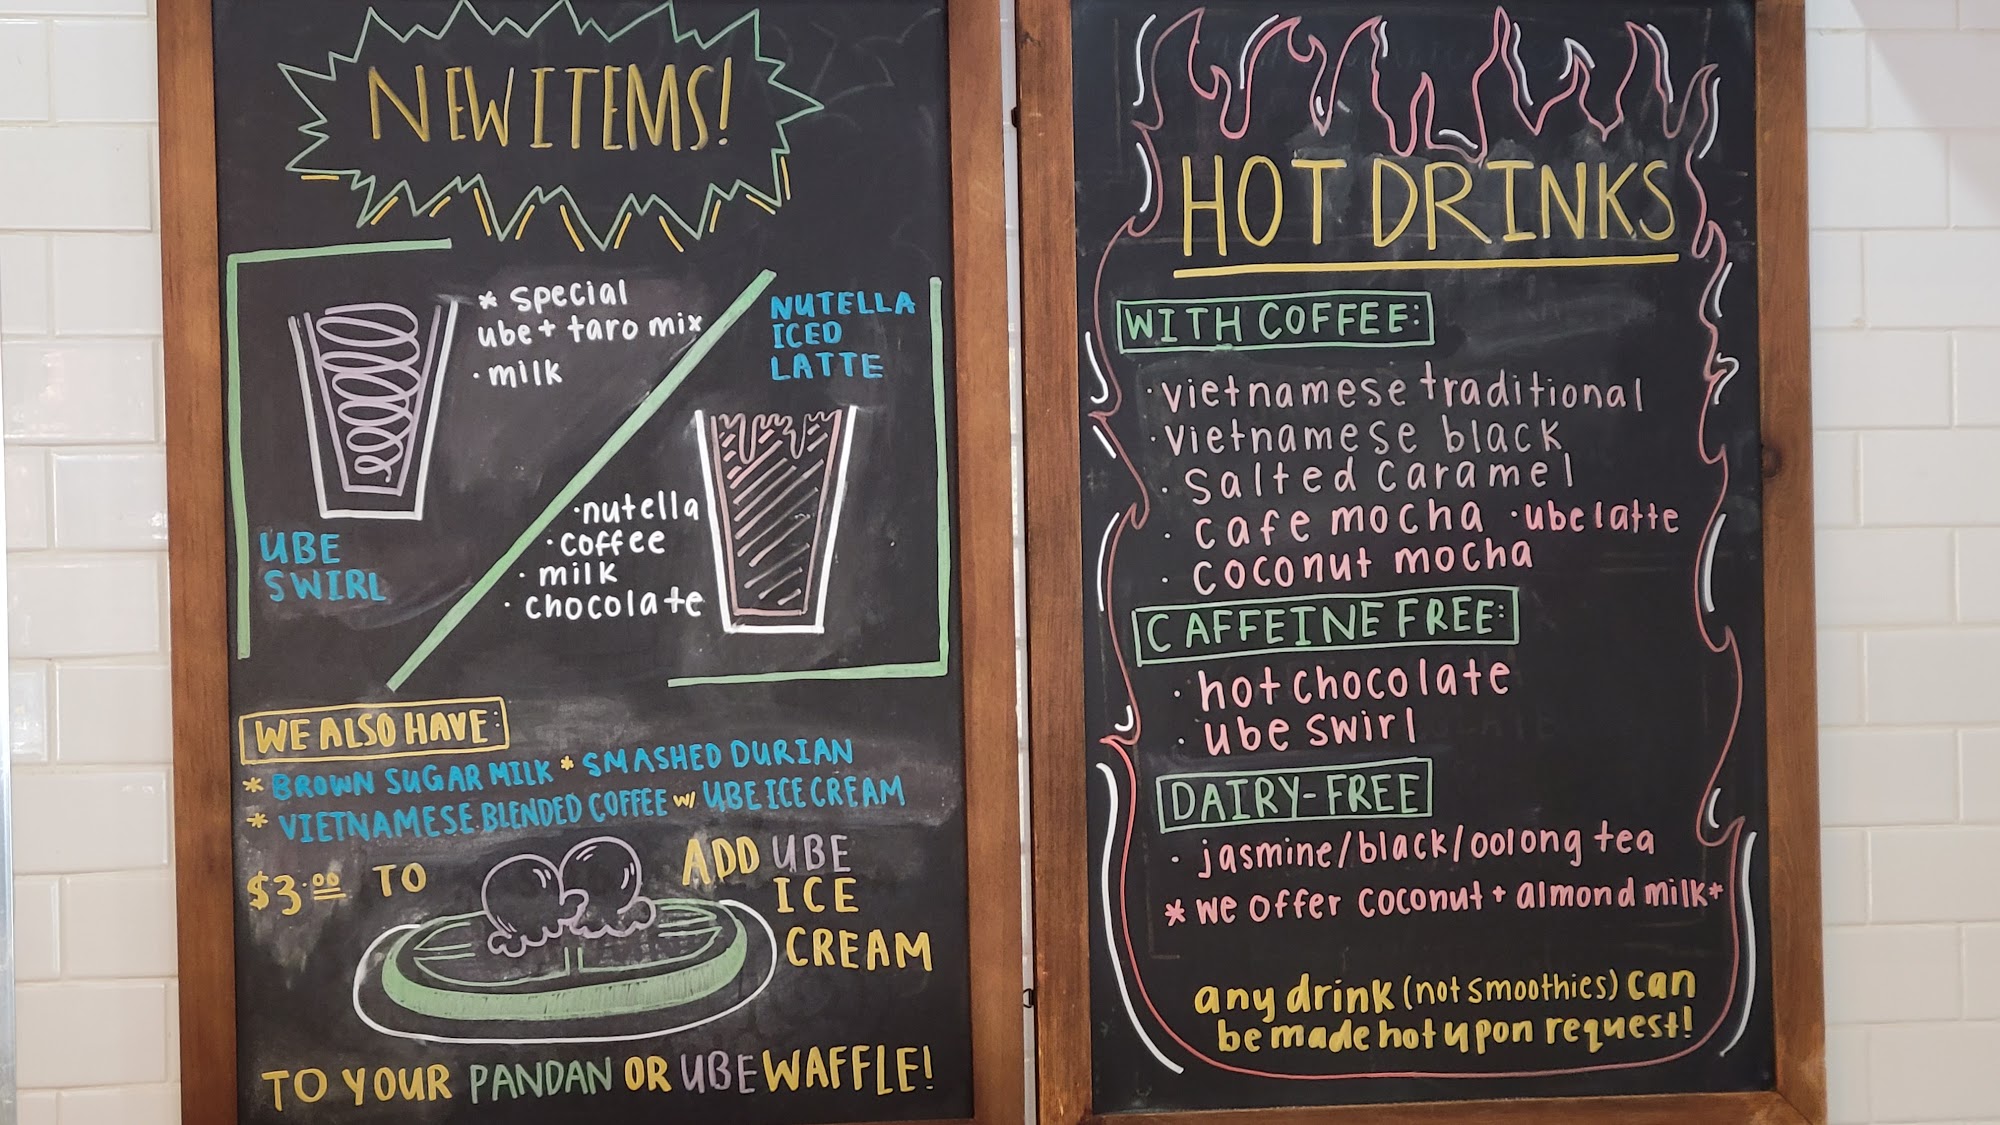 NEW ITEMS!
* special
ube + taro mix
· milk
UBE
SWIRL
NUTELLA
ICED
LATTE
· nutella
· coffee
· milk
· chocolate
WE ALSO HAVE:
* BROWN SUGAR MILK * SMASHED DURIAN
* VIETNAMESE BLENDED COFFEE w/ UBE ICE CREAM
$3.00 TO
ADD UBE
ICE
CREAM
TO YOUR PANDAN OR UBE WAFFLE!
HOT DRINKS
WITH COFFEE:
· vietnamese traditional
· vietnamese black
· salted caramel
· cafe mocha · ube latte
· coconut mocha
CAFFEINE FREE:
· hot chocolate
· ube swirl
DAIRY-FREE
· jasmine/black/oolong tea
* we offer coconut + almond milk *
any drink (not smoothies) can
be made hot upon request!